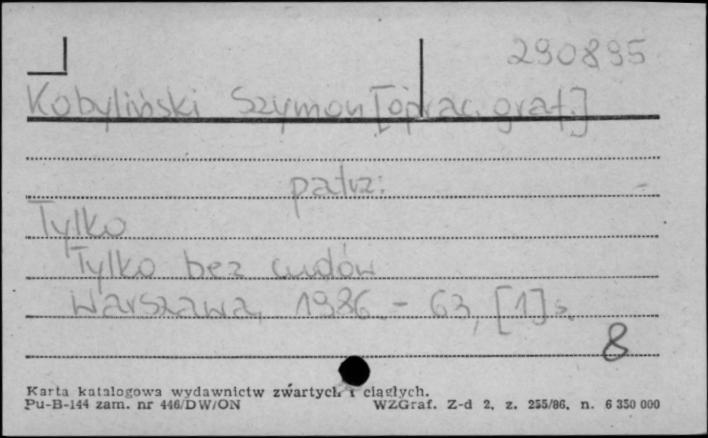 290895
Kobyliński Szymon [oprac. graf.]
patrz:
Tylko
Tylko bez cudów
Warszawa, 1986. - 63, [1] s.
8
Karta katalogowa wydawnictw zwartych i ciągłych.
Pu-B-144 zam. nr 446/DW/ON WZGraf. Z-d 2, z. 255/86, n. 6 350 000